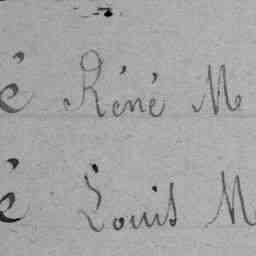 é Réné M
é Louis M